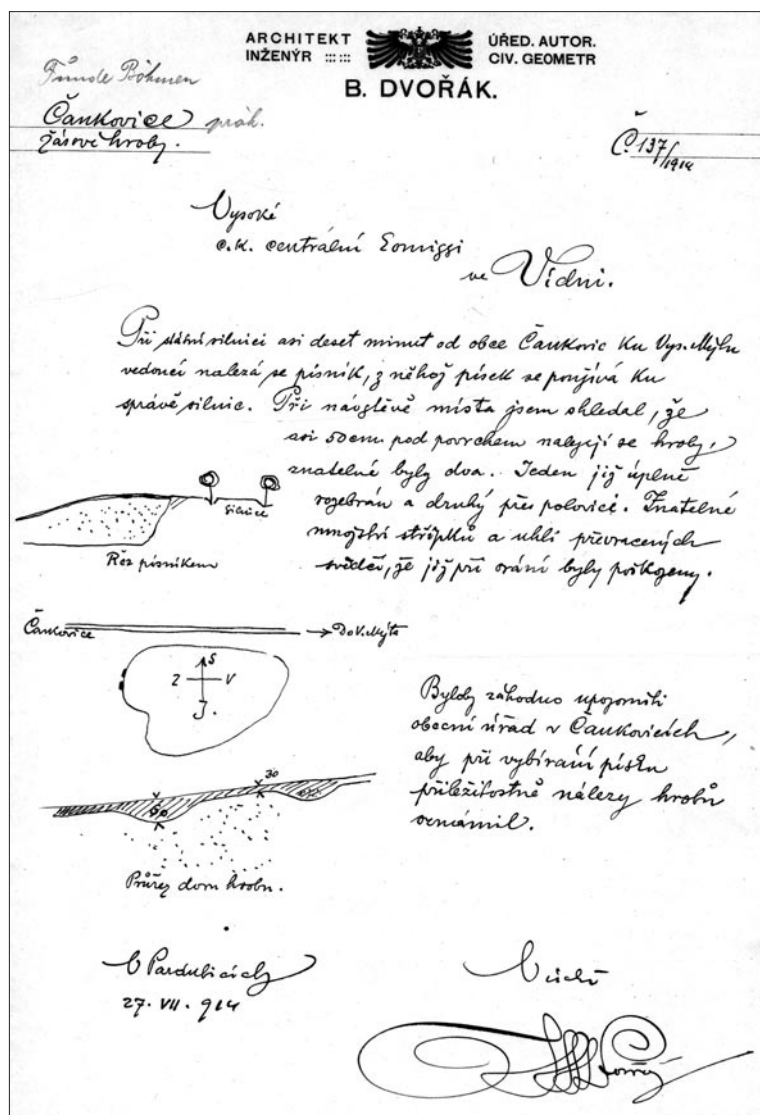 ARCHITEKT INŽENÝR :::: :::
ÚŘED. AUTOR. CIV. GEOMETR
B. DVOŘÁK.
Funde Böhmen
Čankovice präh.
žárové hroby.
Č. 137/1914
Vysoké
c.k. centrální
ve Vídni.
Při státní silnici asi deset minut od obce Čankovic ku Vys. Mýtu
vedoucí nalezá se písník, z něhož písek se používá ku
správě silnic. Při návštěvě místa jsem shledal, že
asi 50cm pod povrchem nalezají se hroby,
znatelné byly dva. Jeden již úplně
rozebrán a druhý přes polovici. Znatelné
množství střípků a uhlí převracených
svědčí, že již při orání byly poškozeny.
silnice
Řez písníkem
Čankovice
Do V. Mýta
S
Z V
J.
30
90
Průřez dom hrobu.
Byloby záhodno upozorniti
obecní úřad v Čankovicích,
aby při vybírání písku
příležitostně nálezy hrobů
oznámil.
V Pardubicích
27. VII. 914